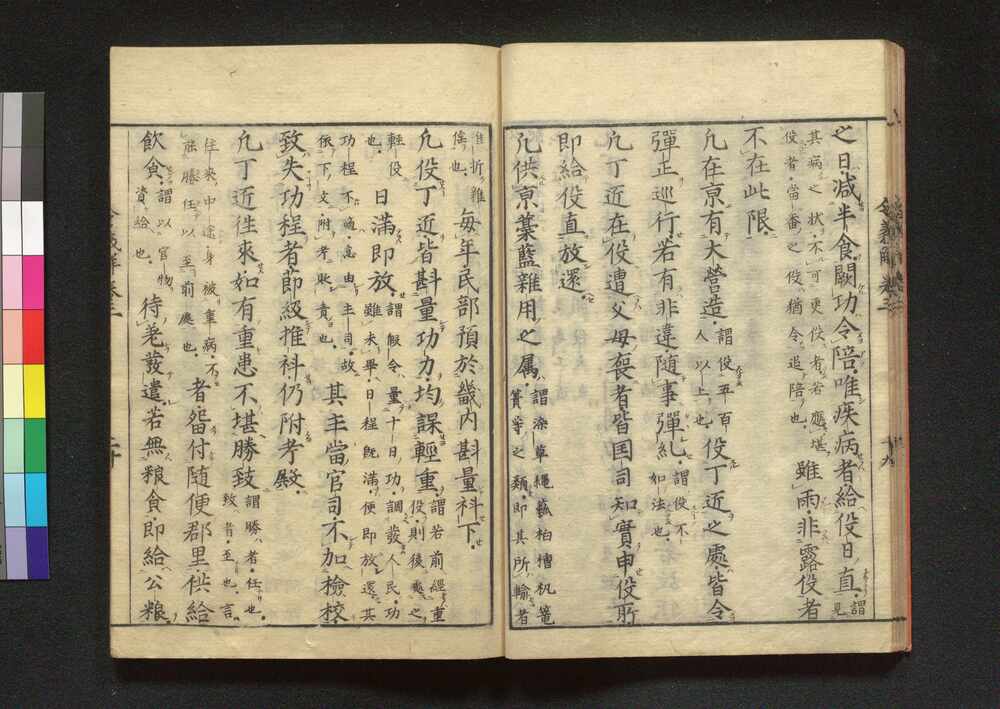 之日減半食闕功令陪唯疾病者給役日直謂見
其病之状不可更役者若應堪
役者當番之役猶令追陪也
雖雨非露役者
不在此限
凢在京有大營造謂役五百
人以上也
役丁近之處皆令
彈正巡行若有非違随事彈糺謂役不
如法也
凢丁近在役遭父母喪者皆国司知實申役所
即給役直放還
凢供京藁藍雜用之属謂染草繩蓏柏檀机篭
簀等之類即其所輸者
令義解 卷三
十九
准折雜
徭也
毎年民部預於畿内斟量科下
凢役丁近皆斟量功力均課輕重謂若前經重
役則後應之
輕役
也
日滿即放謂假令量十日功調發人民功
雖未畢日程既滿便即放還其
功程不適悉由主司故
依下文附考貶責也
其主當官司不加檢校
致失功程者莭級推科仍附考殿
凢丁近徃來如有重患不堪勝致謂勝者任也
致者至也言
徃來中途身被重病不
能勝任以至前處也
者畄付随便郡里供給
飲食謂以官物
資給也
待差發遣若無粮食即給公粮
令義解卷三
二十